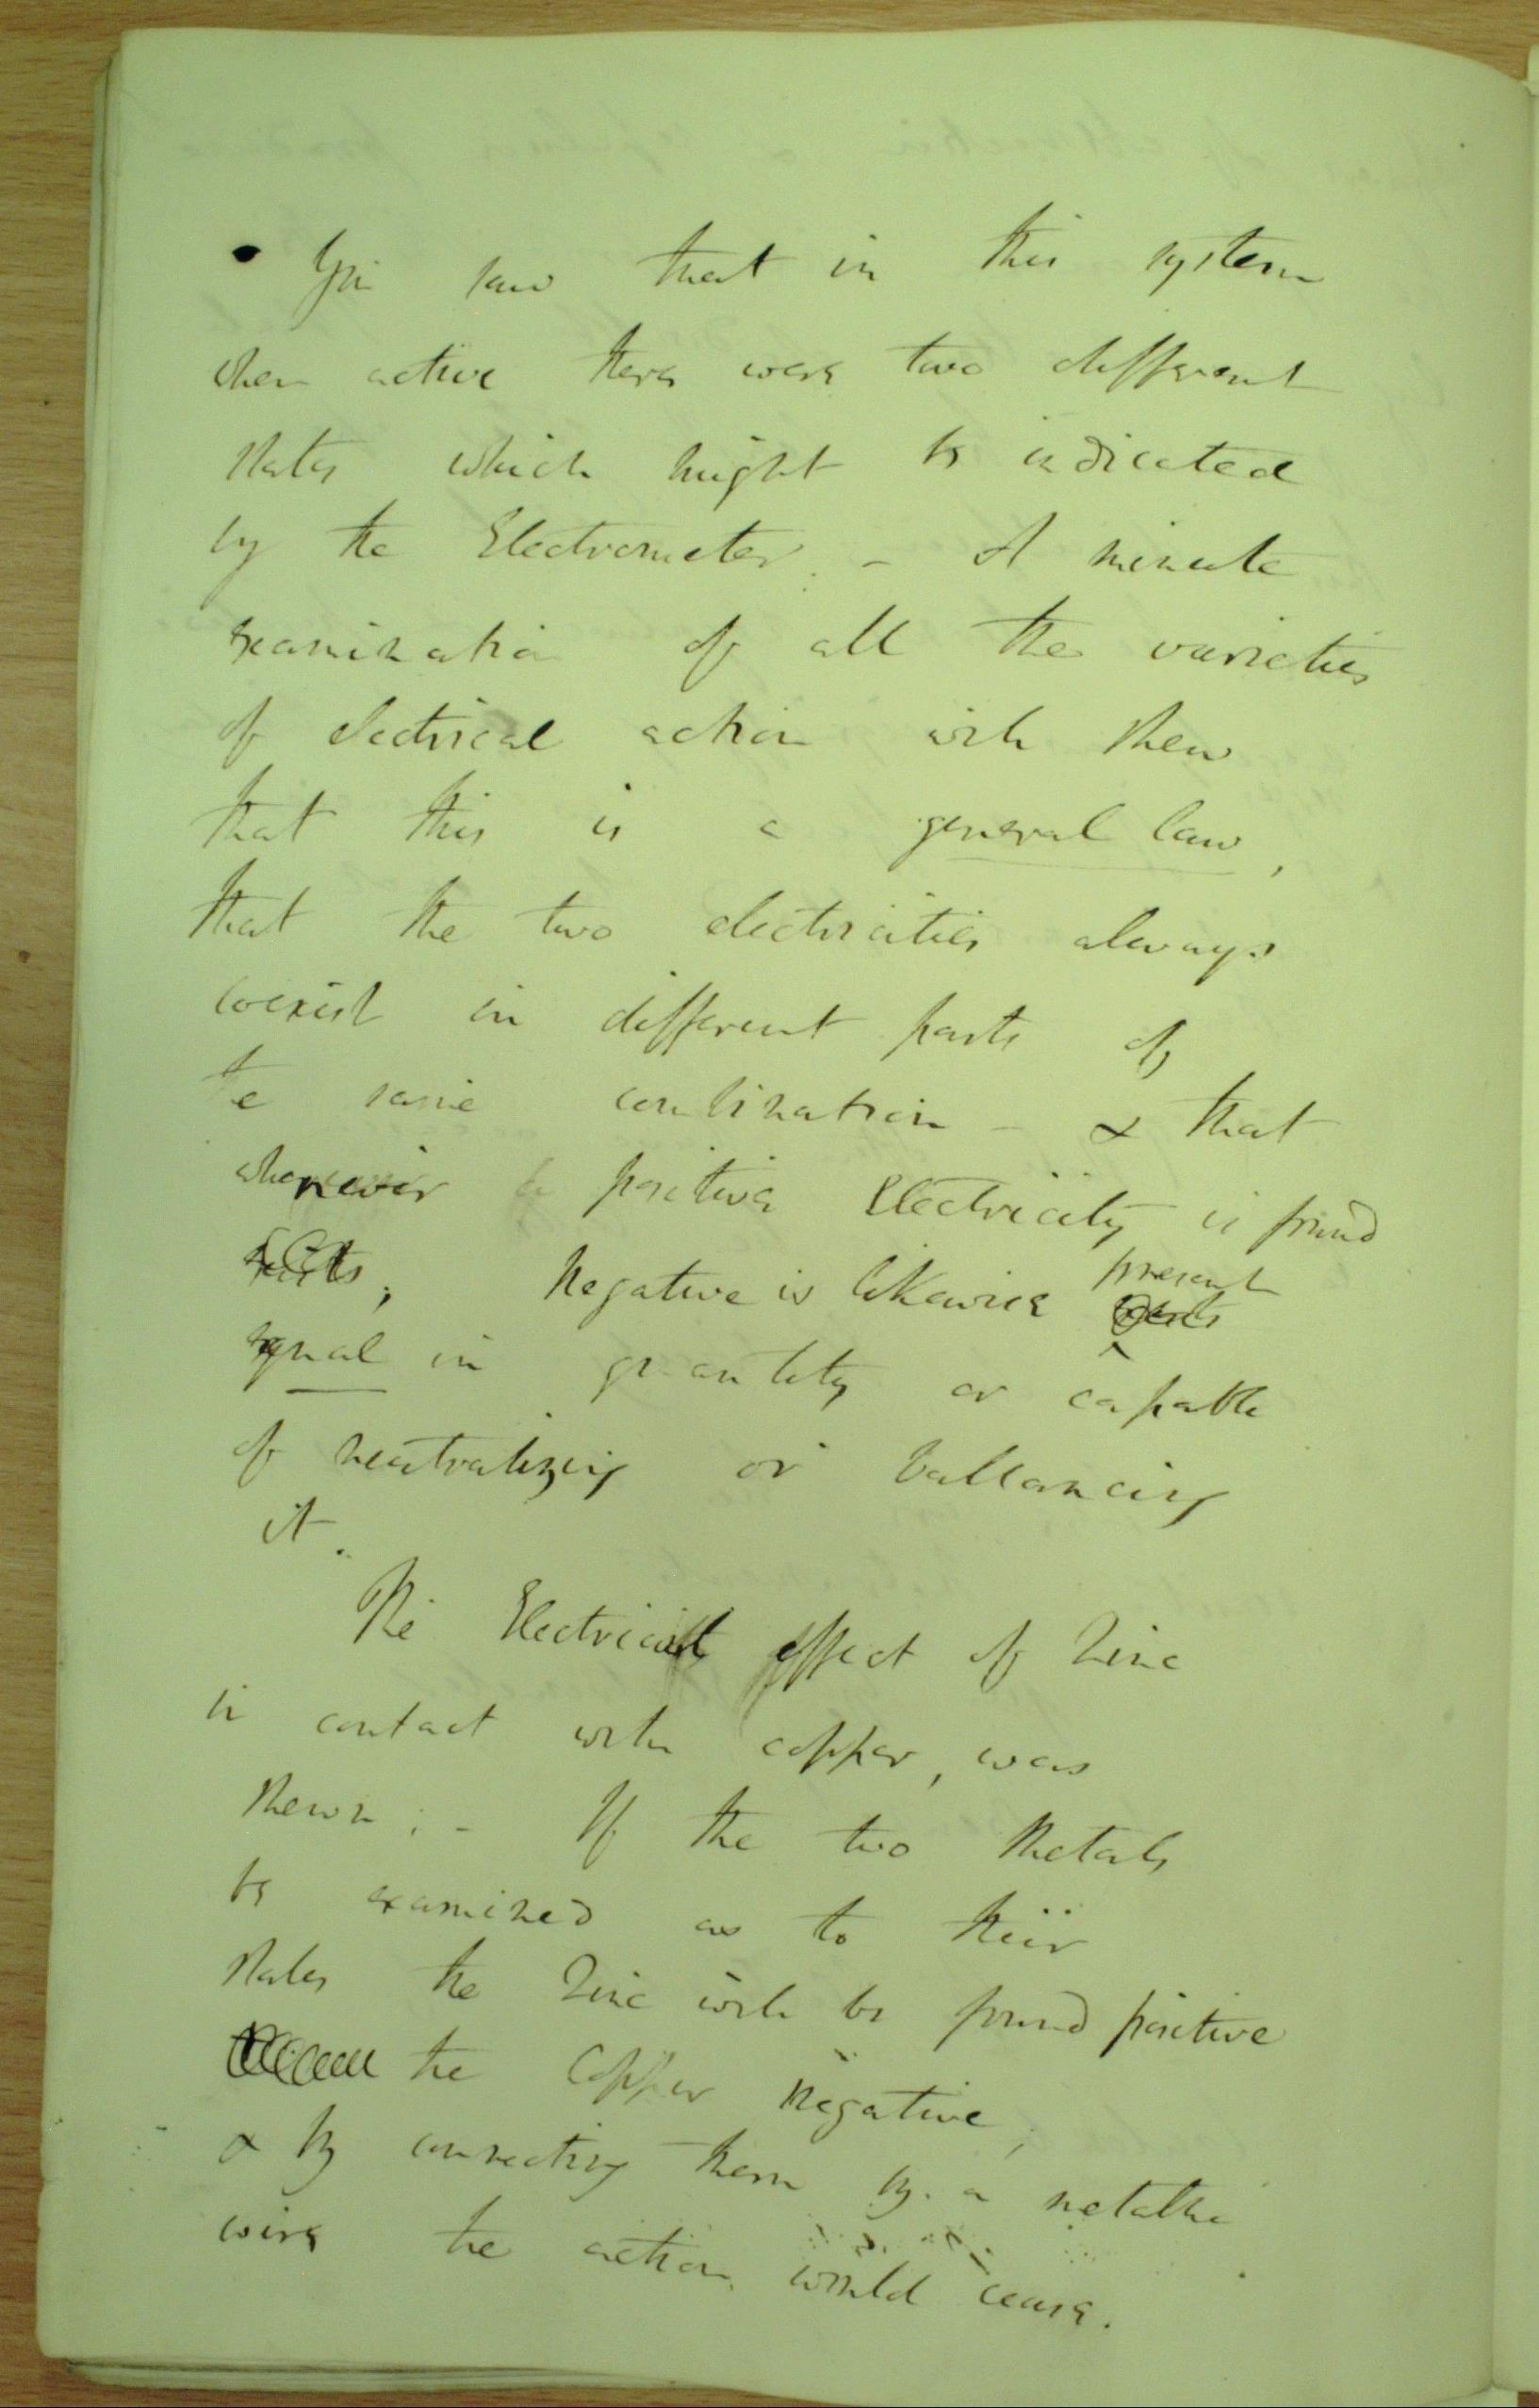 You saw that in this system
when active there were two different
states which might be indicated
by the Electrometer. - A minute
examination of all the varieties
of electrical action will shew
that this is a general law,
that the two electricities always
coexist in different parts of
the same combination - & that
whenever positive Electricity is found
; Negative is likewise present
equal in quantity or capable
of neutralizing or ballancing
it.
The Electrical effect of Zinc
in contact with copper, was
shewn; - If the two Metals
be examined as to their
states the Zinc will be found positive
the Copper negative,
& by connecting them by a metallic
wire the action would cease.